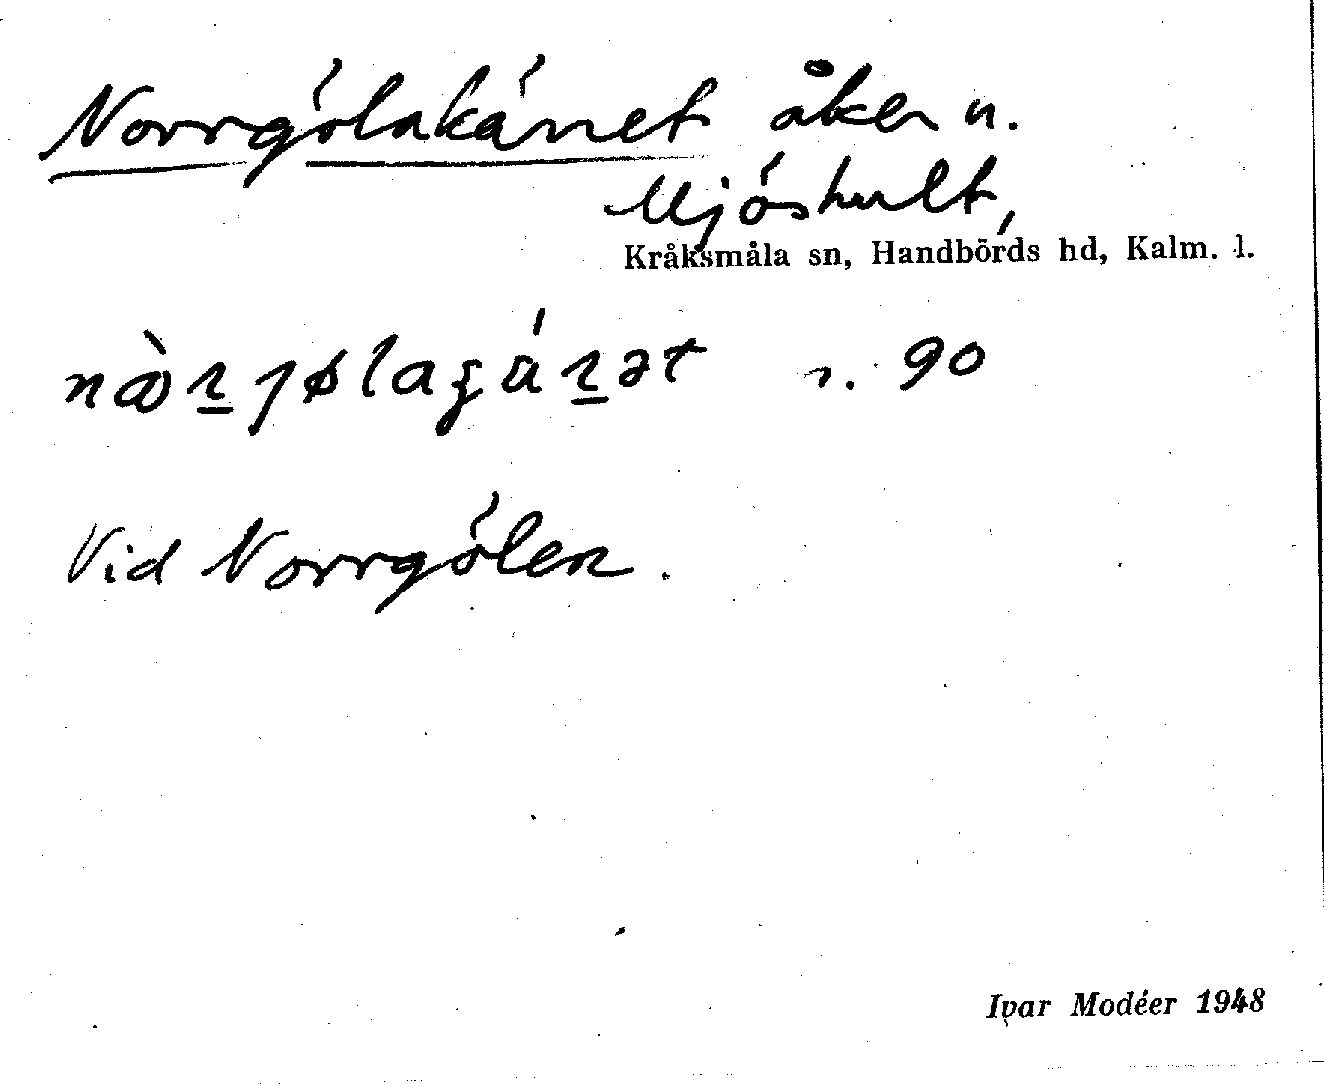 Norrgölakärret åker n.
Mjöshult,
Kråksmåla sn, Handbörds hd, Kalm. l.
n. 90
Vid Norrgölen.
Ivar Modéer 1948